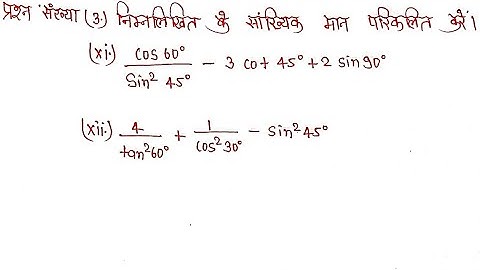 प्रश्न संख्या (3.) निम्नलिखित के सांख्यिक मान परिकलित करें।
(xi.) cos 60° / Sin² 45° - 3 cot 45° + 2 sin 90°
(xii.) 4 / tan² 60° + 1 / cos² 30° - sin² 45°